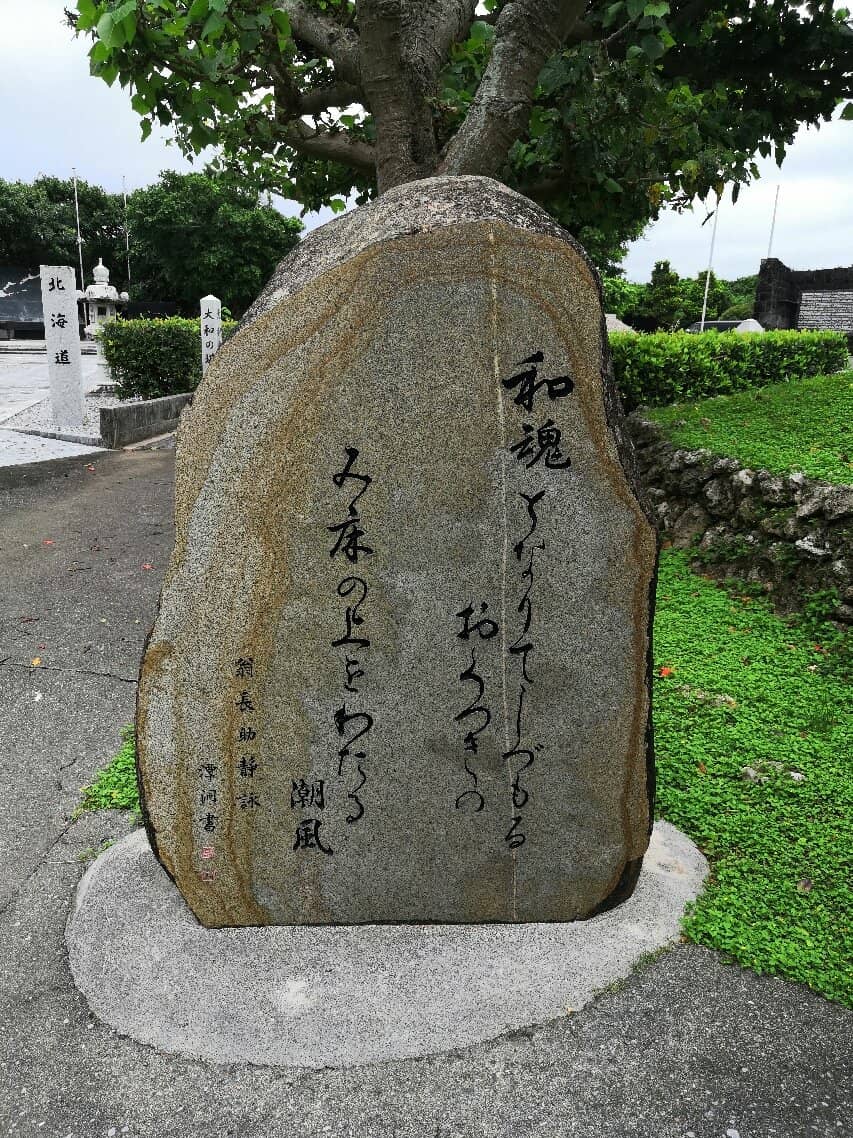 和魂となりてしづもる
おくつきの
み床の上をわたる
潮風
翁長助静詠
潭洞書
北海道
大和の